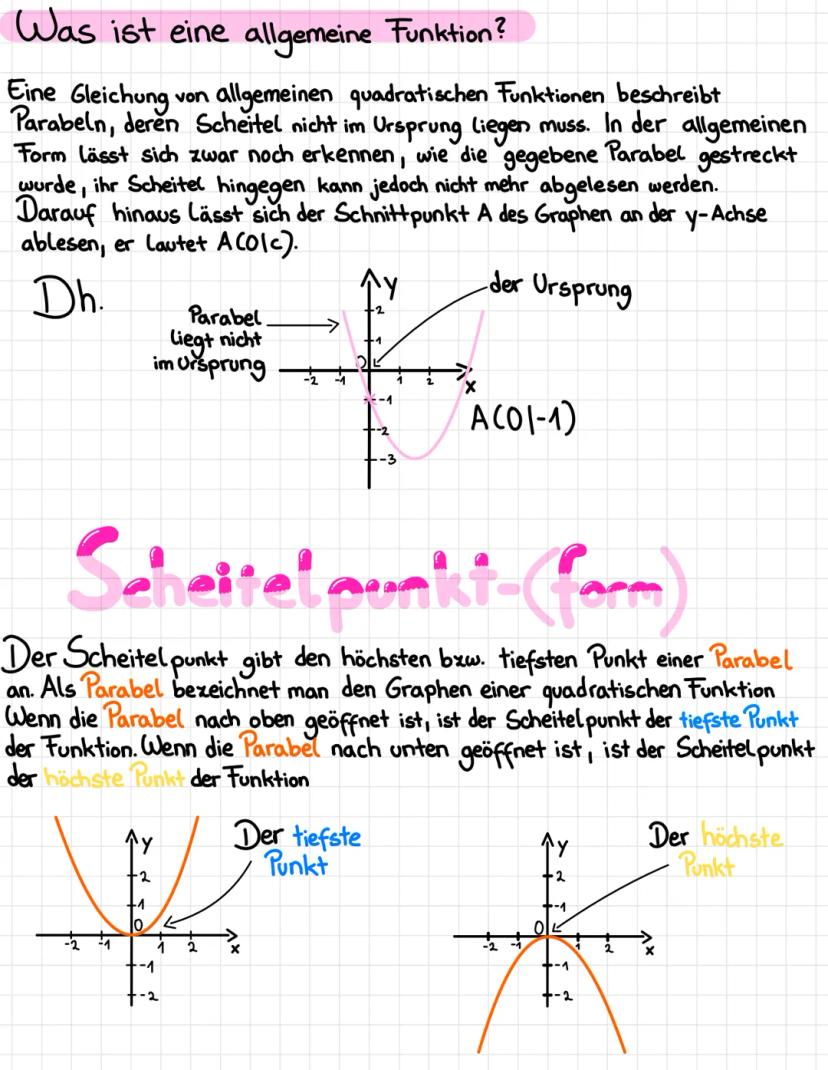 Was ist eine allgemeine Funktion?
Eine Gleichung von allgemeinen quadratischen Funktionen beschreibt
Parabeln, deren Scheitel nicht im Ursprung liegen muss. In der allgemeinen
Form lässt sich zwar noch erkennen, wie die gegebene Parabel gestreckt
wurde, ihr Scheitel hingegen kann jedoch nicht mehr abgelesen werden.
Darauf hinaus lässt sich der Schnittpunkt A des Graphen an der y-Achse
ablesen, er lautet A(0|c).
Dh.
Parabel
liegt nicht
im Ursprung
y
2
1
0
-2 -1 1 2
x
-1
-2
-3
der Ursprung
A(0|-1)
Scheitelpunkt-(form)
Der Scheitelpunkt gibt den höchsten bzw. tiefsten Punkt einer Parabel
an. Als Parabel bezeichnet man den Graphen einer quadratischen Funktion
Wenn die Parabel nach oben geöffnet ist, ist der Scheitelpunkt der tiefste Punkt
der Funktion. Wenn die Parabel nach unten geöffnet ist, ist der Scheitelpunkt
der höchste Punkt der Funktion
y
2
1
0
-2 -1 1 2
x
-1
-2
Der tiefste
Punkt
y
2
-1
0
-2 -1 1 2
x
-1
-2
Der höchste
Punkt